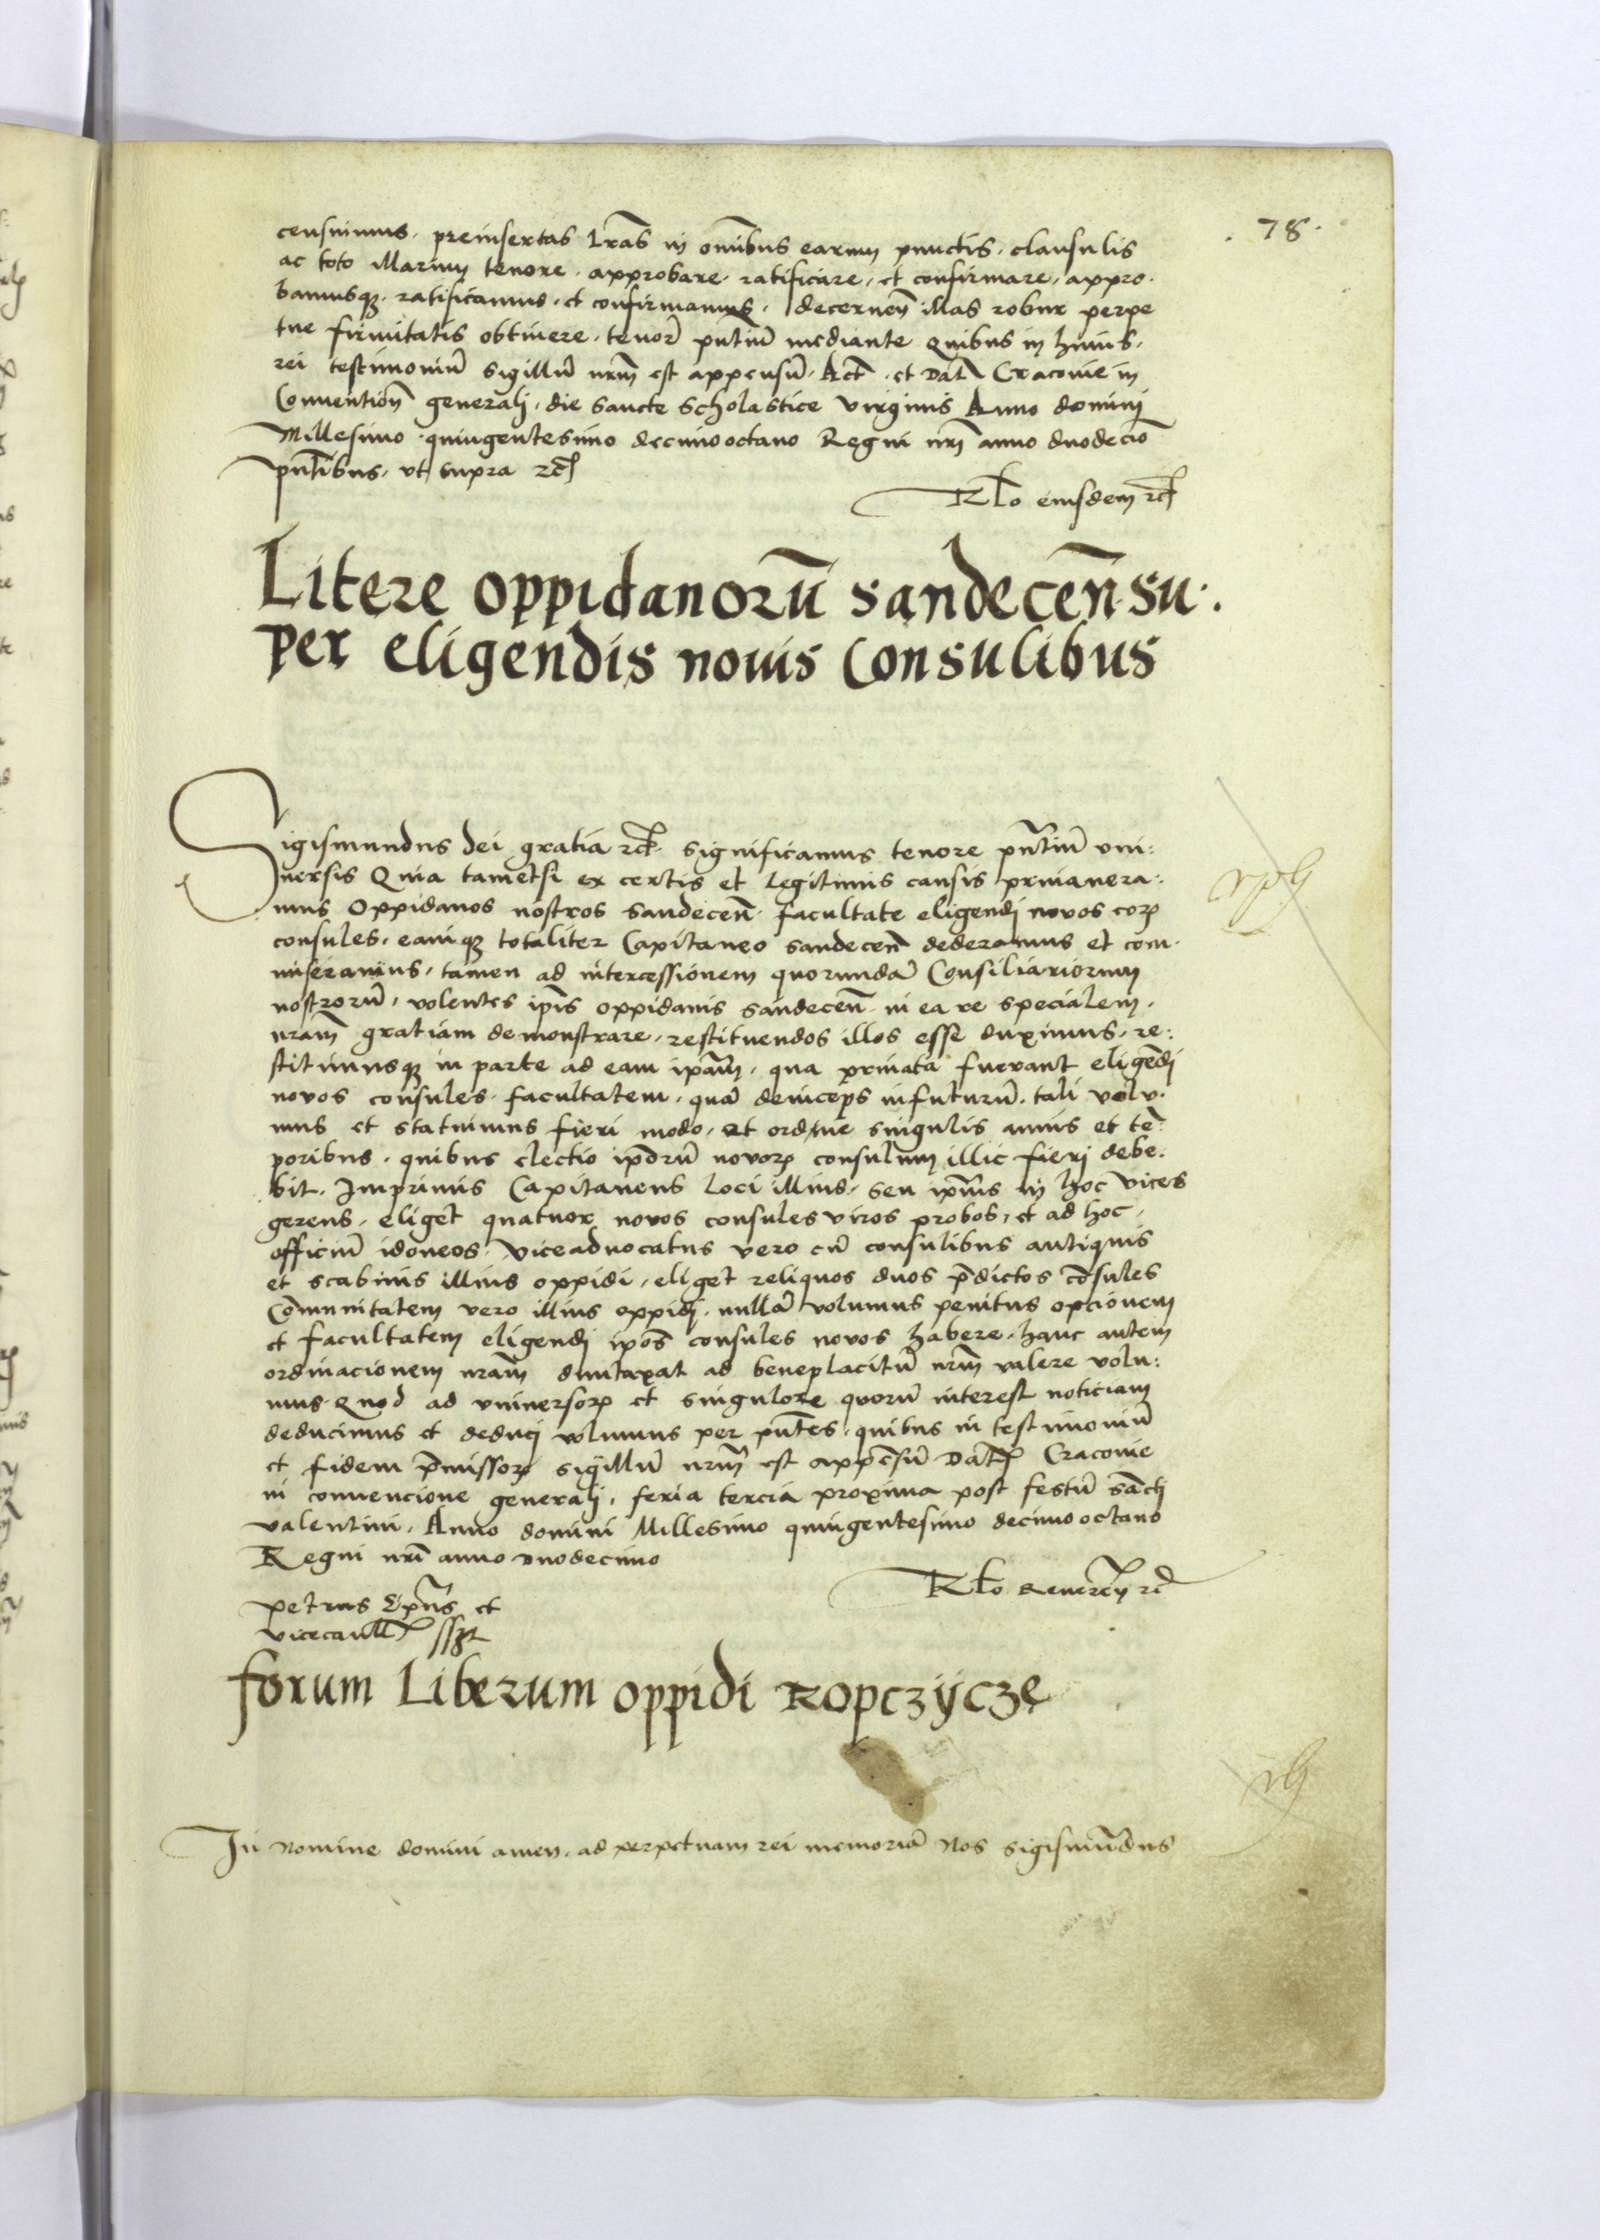 78.
censuimus. preinsertas lr̃as in om̃ibus earum punctis. clausulis
ac toto illarum tenore. approbare. ratificare. et confirmare. appro.
bamusq₃. ratificamus. et confirmamus. decernen̄ illas robur perpe
tue firmitatis obtinere. tenor̄ pn̄tiū mediante Quibus in huius.
rei testimoniū sigillū nr̄m est appensū. Act̄. et Dat̄ Cracovie in
Conventioñ generali. die sancte Scholastice virginis Anno domini
Millesimo quingentesimo decimooctavo Regni nr̄i anno duodecīo
pn̄tibus. ut supra rc̄
Rl̄o eiusdem rc̄
Litere oppidanorū sandecen̄. su.
per eligendis novis Consulibus
Sigismundus dei gratia rc̄. significamus tenore pn̄tiū uni:
versis Quia tametsi ex certis et legitimis causis privavera:
mus Oppidanos nostros Sandecen̄. facultate eligendi novos eoꝝ
consules. eamq₃ totaliter Capitaneo sandecen̄ dederamus et com.
miseramus. tamen ad intercessionem quorundā Consiliariorum
nostrorū. volentes ip̄is oppidanis sandecen̄ in ea re specialem.
nr̄am gratiam demonstrare. restituendos illos esse duximus. re:
stituimusq₃ in parte ad eam ip̄am. qua privata fuerant eligēdi
novos consules. facultatem. quā deinceps infuturū. tali volu.
mus et statuimus fieri modo. et ordine singulis annis et tē:
poribus. quibus electio ip̄orū novoꝝ consulum illic fieri debe:
bit. Imprimis Capitaneus loci illius. seu ip̄ius in hoc vices
gerens. eliget quatuor novos consules viros probos, et ad hoc.
officiū idoneos. viceadvocatus vero cū consulibus antiquis
et scabinis illius oppidi. eliget reliquos duos p̄dictos cōsules
Cōmunitatem vero illius oppidi. nullā volumus penitus opcionem
et facultatem eligendi ip̄os consules novos habere. hanc autem
ordinacionem nr̄am duntaxat ad beneplacitū nr̄m valere volu:
mus. Quod ad universoꝝ et singulore quorū interest noticiam
deducimus et deduci volumus per pn̄tes. quibus in testimoniū
et fidem p̄missoꝝ sigillū nr̄m est appēsū. Dat̄ Cracovie
in convencione generali. feria tercia proxima post festū sāncti
valentini. Anno domini Millesimo quingentesimo decimooctavo
Regni nr̄i anno duodecimo
Rl̄o Reveren̄ rc̄
Petrus Ep̄us et
vicecancell̄
forum Liberum oppidi Ropczÿcze
In nomine domini amen. ad perpetuam rei memoriā Nos Sigismūdus